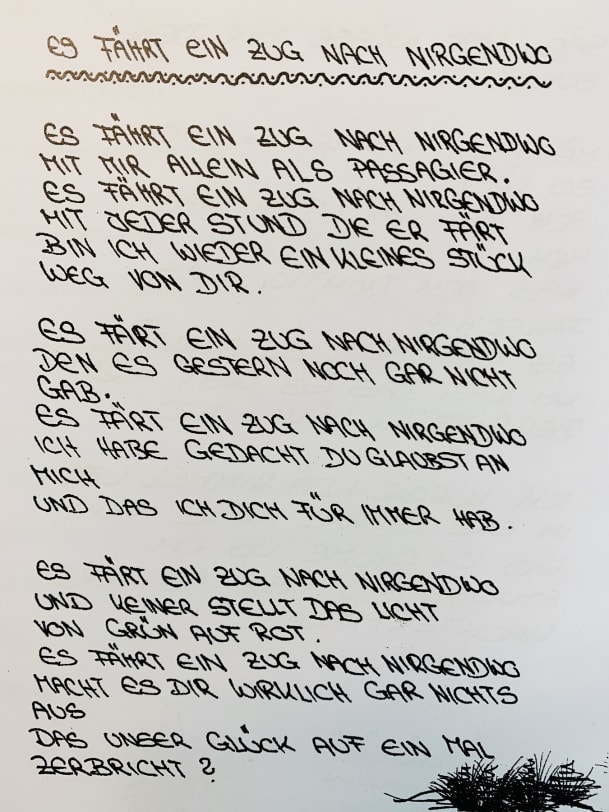 ES FÄHRT EIN ZUG NACH NIRGENDWO
ES FÄHRT EIN ZUG NACH NIRGENDWO
MIT MIR ALLEIN ALS PASSAGIER.
ES FÄHRT EIN ZUG NACH NIRGENDWO
MIT JEDER STUND DIE ER FÄRT
BIN ICH WIEDER EIN KLEINES STÜCK
WEG VON DIR.
ES FÄRT EIN ZUG NACH NIRGENDWO
DEN ES GESTERN NOCH GAR NICHT
GAB.
ES FÄRT EIN ZUG NACH NIRGENDWO
ICH HABE GEDACHT DU GLAUBST AN
MICH
UND DAS ICH DICH FÜR IMMER HAB.
ES FÄRT EIN ZUG NACH NIRGENDWO
UND KEINER STELLT DAS LICHT
VON GRÜN AUF ROT.
ES FÄHRT EIN ZUG NACH NIRGENDWO
MACHT ES DIR WIRKLICH GAR NICHTS
AUS
DAS UNSER GLÜCK AUF EIN MAL
ZERBRICHT?